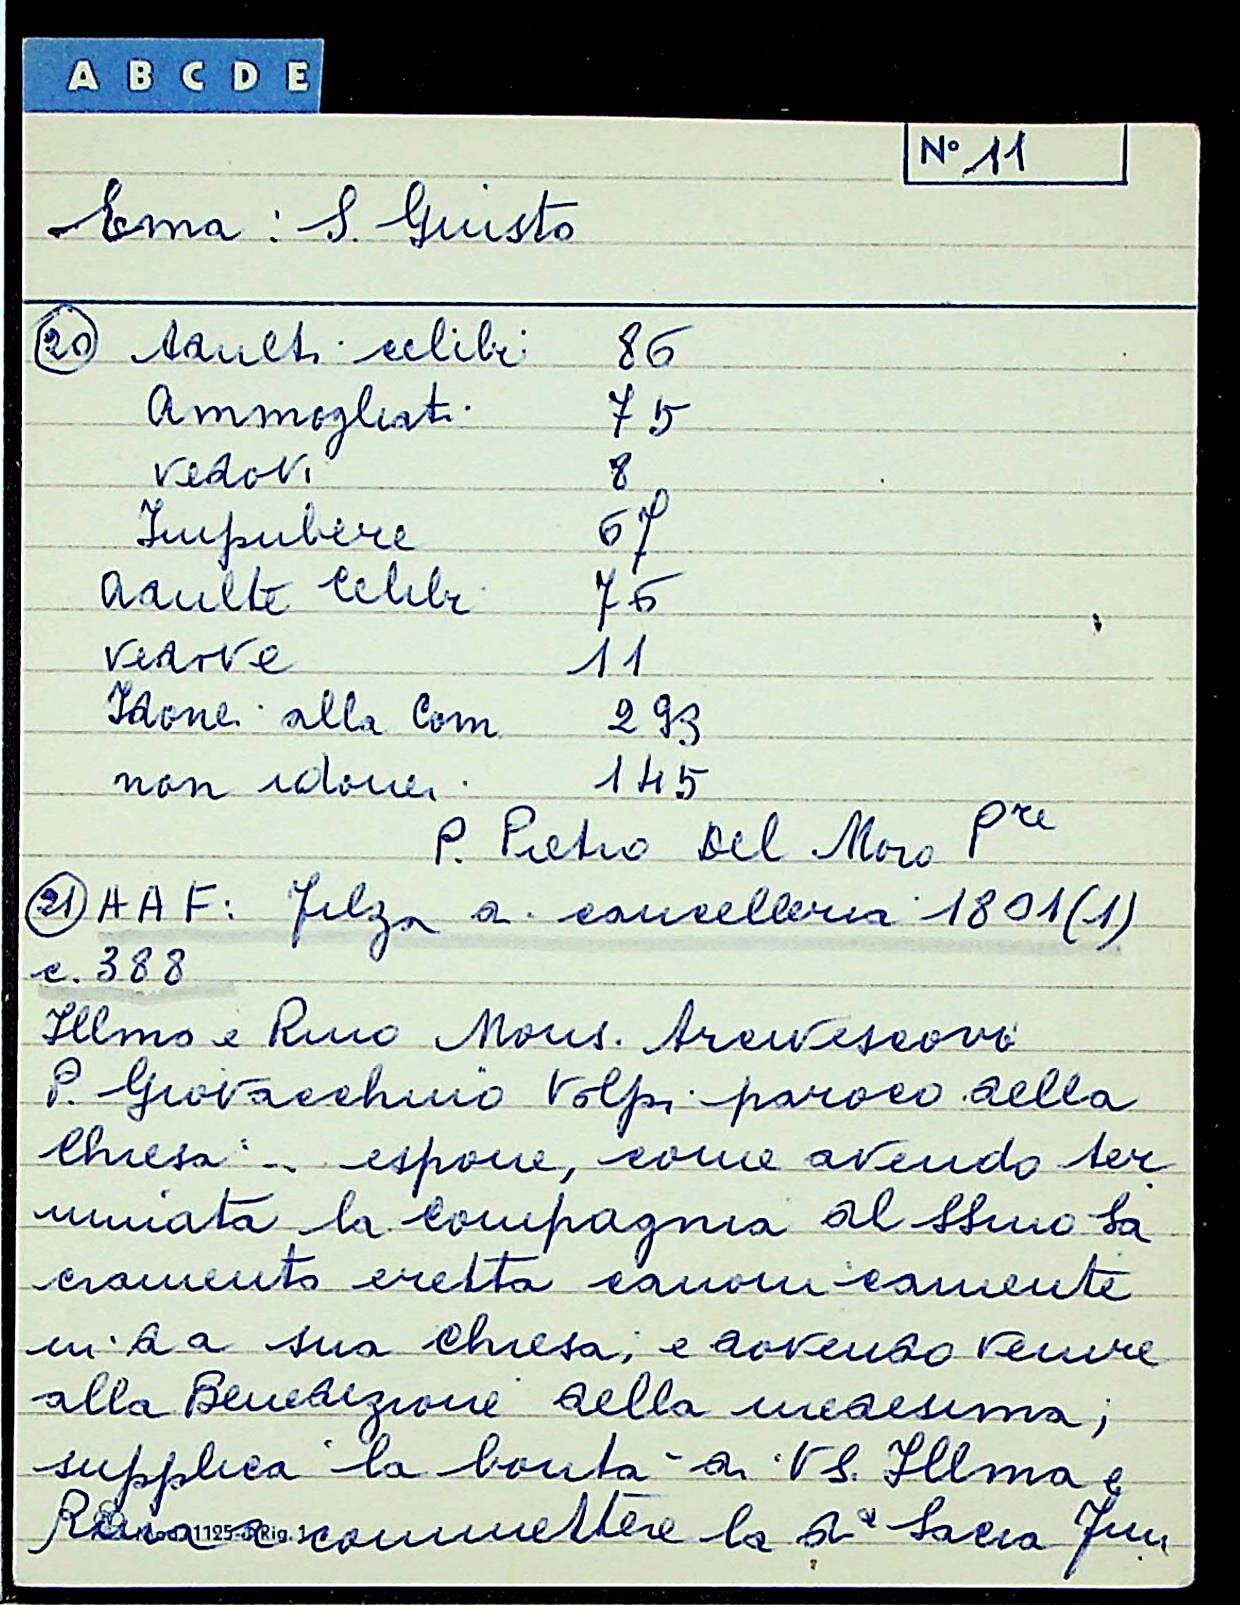 A B C D E
N° 11
Ema: S. Giusto
20 Adulti celibi 86
Ammogliati 75
vedovi 8
Impubere 67
adulte celibi 76
vedove 11
Idonei alla Com 293
non idonei 145
P. Pietro Del Moro Pre
21 AAF: Filza di cancelleria 1801(1)
c. 388
Illmo e Rmo Mons. Arcivescovo
P. Giovacchino Volpi paroco della
Chiesa ... espone, come avendo ter
minata la compagnia del SSmo Sa
cramento eretta canonicamente
in da sua Chiesa; e dovendo venire
alla Benedizione della medesima;
supplica la bontà di VS. Illma e
Rma a commettere la da Sacra Fun
1125 Rig. 1